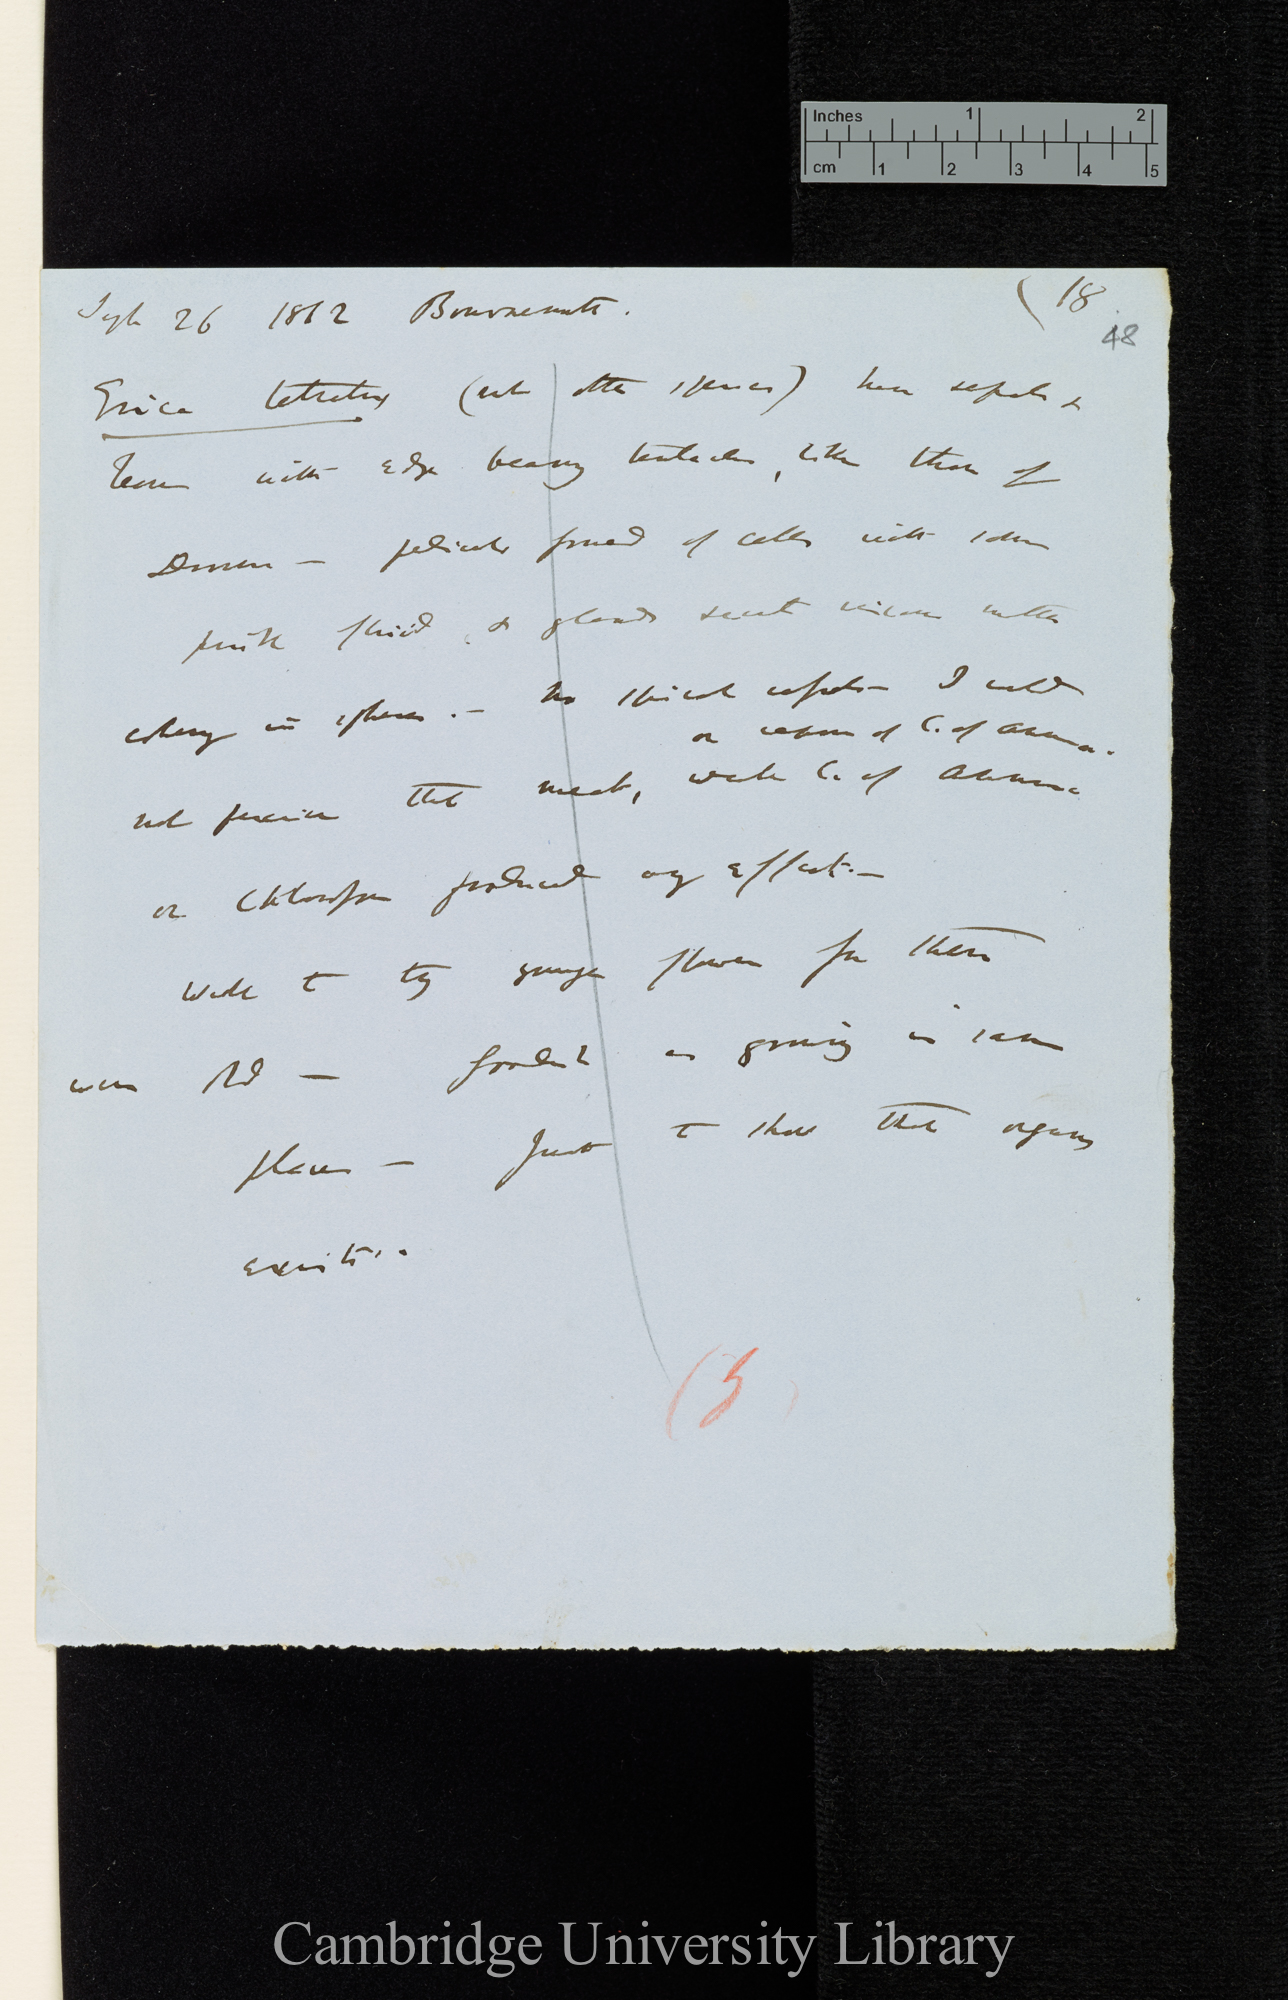 Inches 1 2
cm 1 2 3 4 5
(18
48
Sept 26 1862 Bournemouth.
Erica tetralix (not other species) has sepals &
leaves with edge bearing tentacles, like those of
Drosera — pedicels formed of cells with some
pink fluid, & glands secrete viscous matter
in spheres. — No spiral I could
or vapour of C. of Ammonia.
not perceive that meat, weak C. of Ammonia
or Chloroform produced any effect. —
Were to try younger flowers for these
were old — Good as growing in same
places — Just to show that organs
exists.
(3)
Cambridge University Library